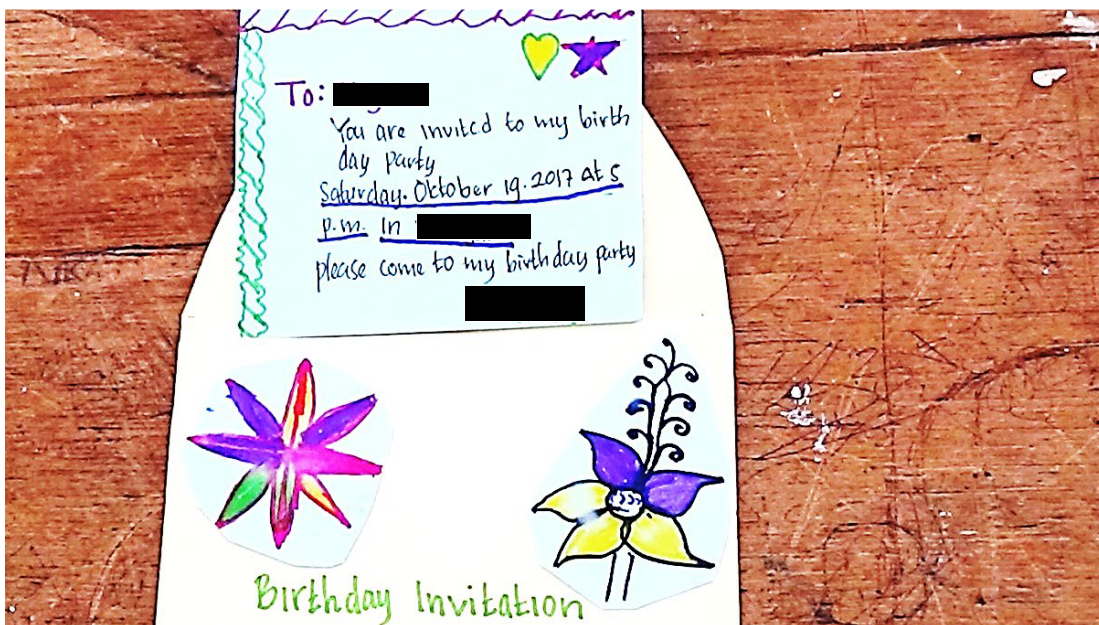 To:
You are invited to my birth
day party
Saturday. Oktober 19. 2017 at 5
p.m. in
please come to my birthday party
Birthday Invitation